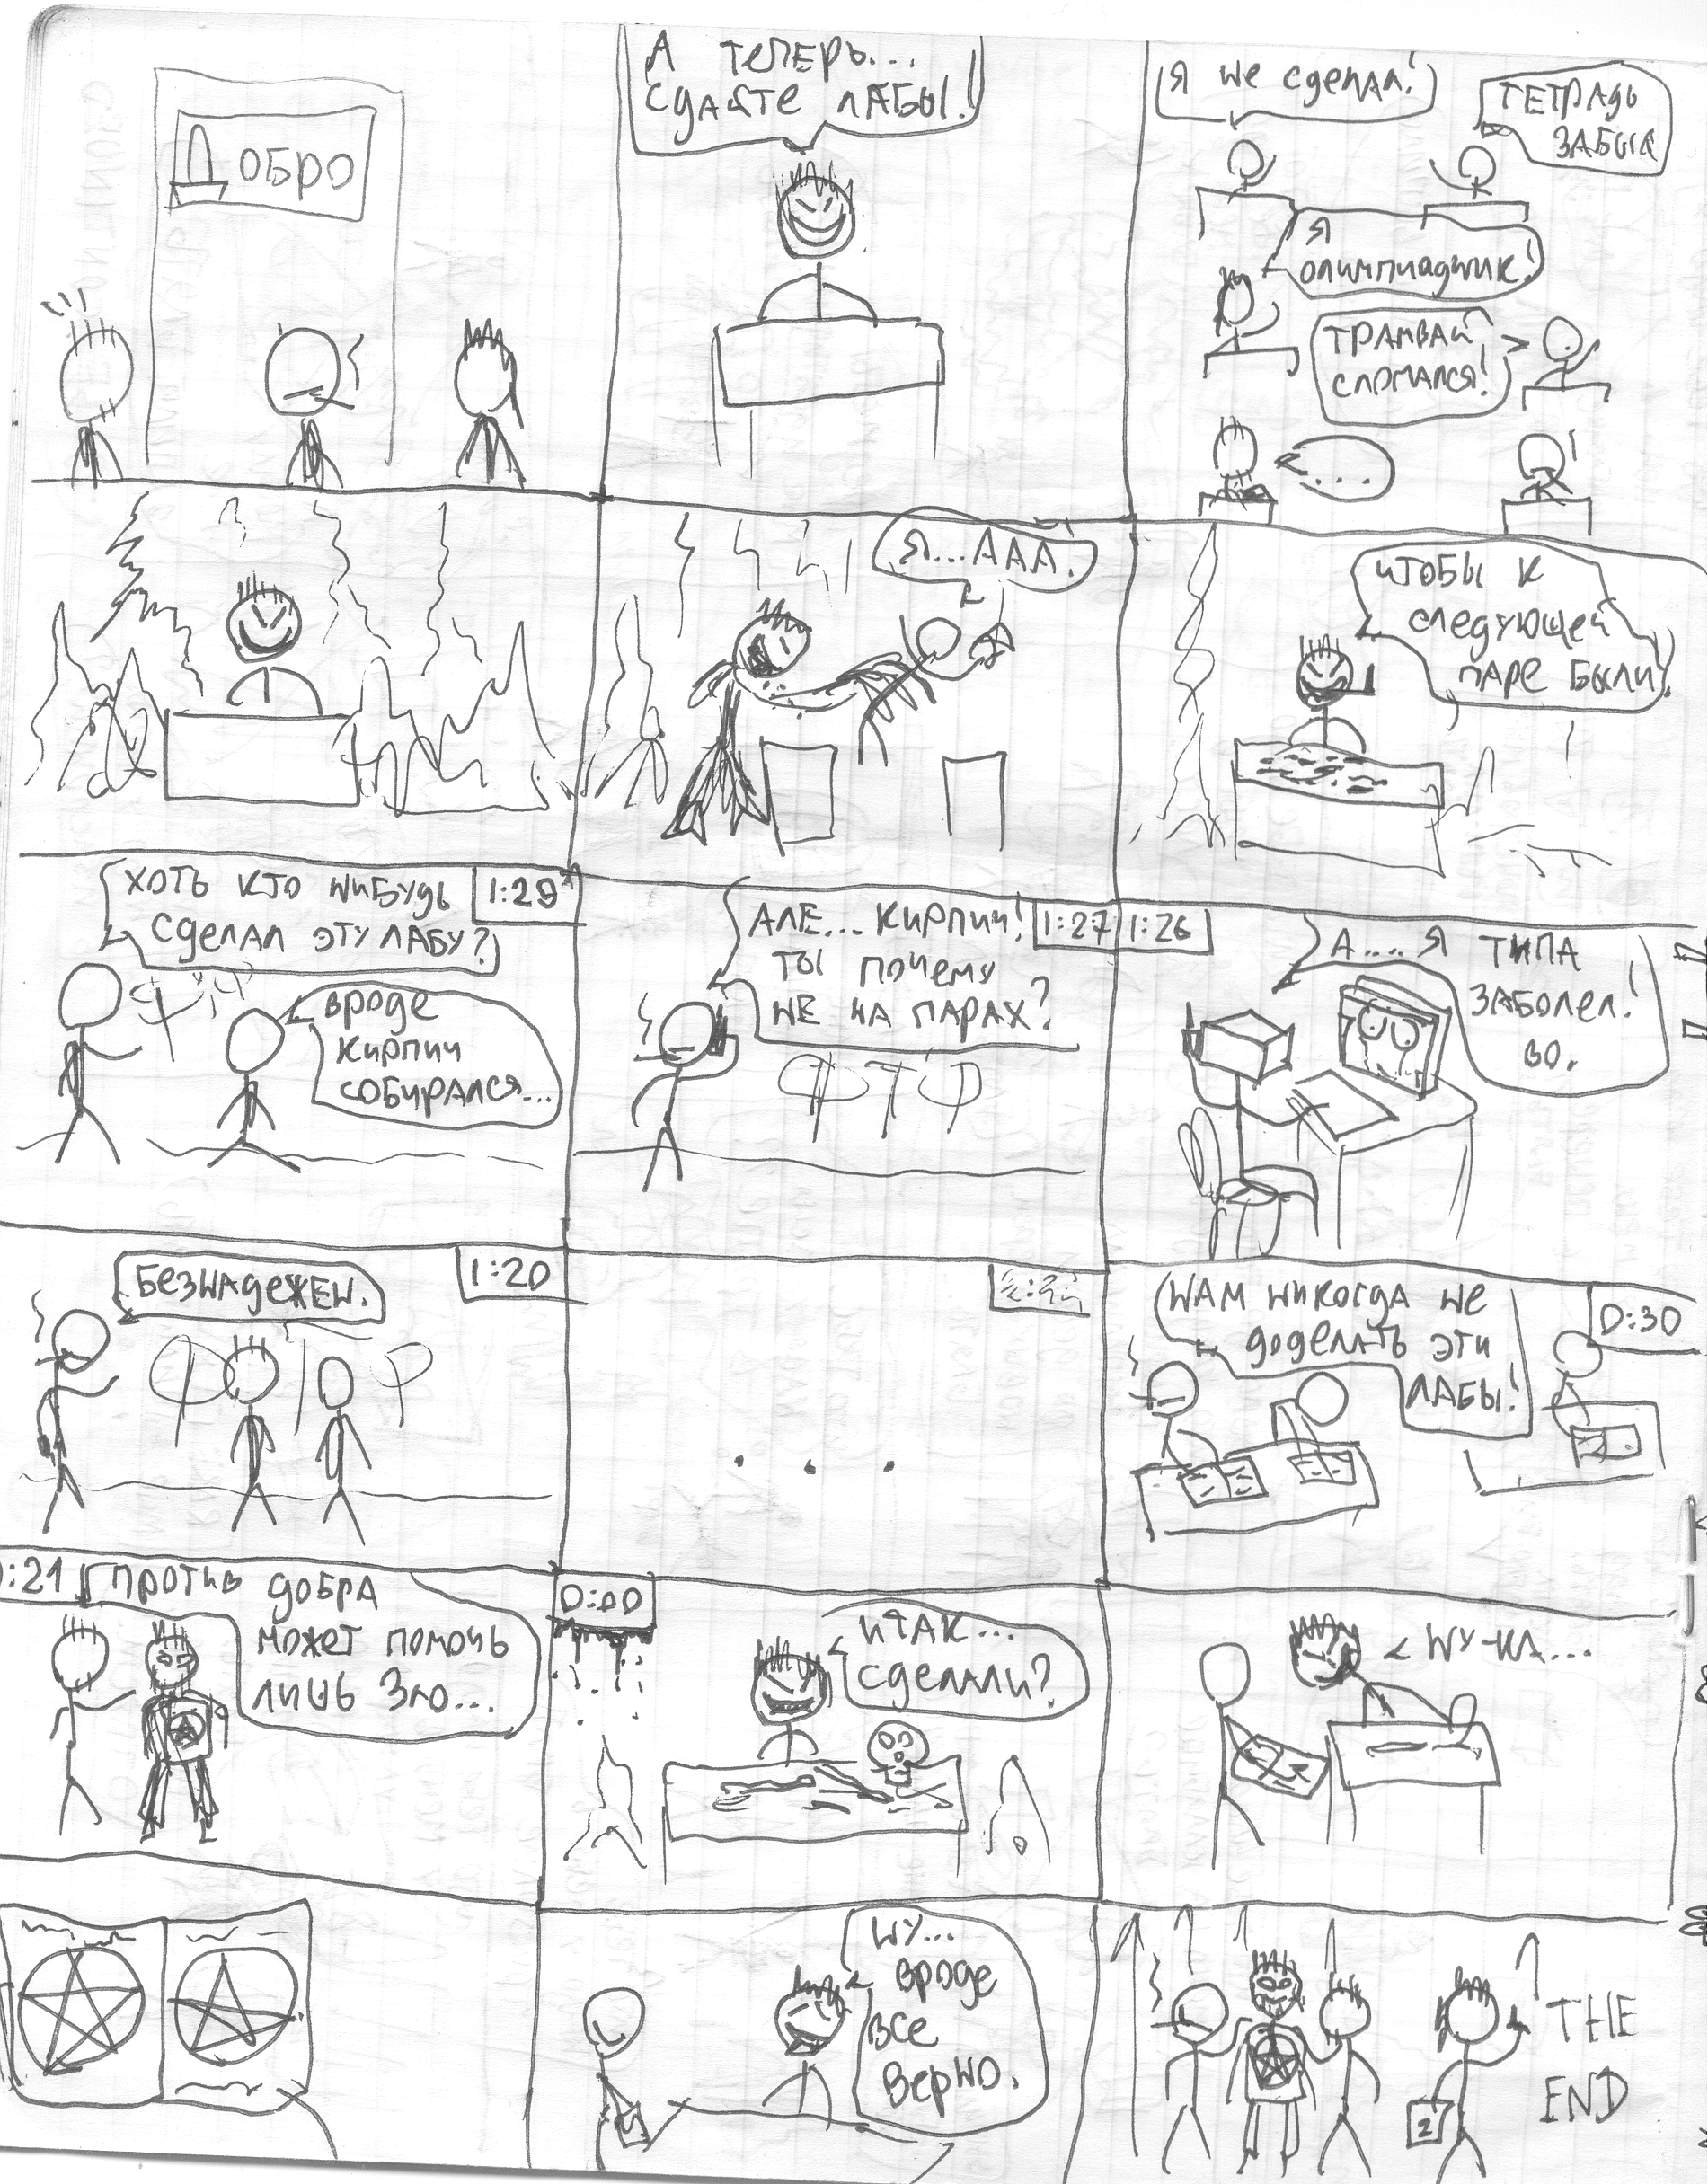 Добро
А ТЕПЕРЬ...
СДАЙТЕ ЛАБЫ!
Я НЕ СДЕЛАЛ!
ТЕТРАДЬ
ЗАБЫЛ
Я
ОЛИМПИАДНИК!
ТРАМВАЙ
СЛОМАЛСЯ!
...
Я...ААА!
ЧТОБЫ К
СЛЕДУЮЩЕЙ
ПАРЕ БЫЛИ!
ХОТЬ КТО НИБУДЬ
СДЕЛАЛ ЭТУ ЛАБУ?
1:29
ВРОДЕ
КИРПИЧ
СОБИРАЛСЯ...
АЛЕ... КИРПИЧ!
ТЫ ПОЧЕМУ
НЕ НА ПАРАХ?
1:27
ФТФ
1:26
А.... Я ТИПА
ЗАБОЛЕЛ!
ВО.
БЕЗНАДЕЖЕН.
1:20
...
НАМ НИКОГДА НЕ
ДОДЕЛАТЬ ЭТИ
ЛАБЫ!
0:30
0:21
ПРОТИВ ДОБРА
МОЖЕТ ПОМОЧЬ
ЛИШЬ ЗЛО...
0:00
ИТАК...
СДЕЛАЛИ?
НУ-КА...
НУ...
ВРОДЕ
ВСЕ
ВЕРНО.
2
THE
END